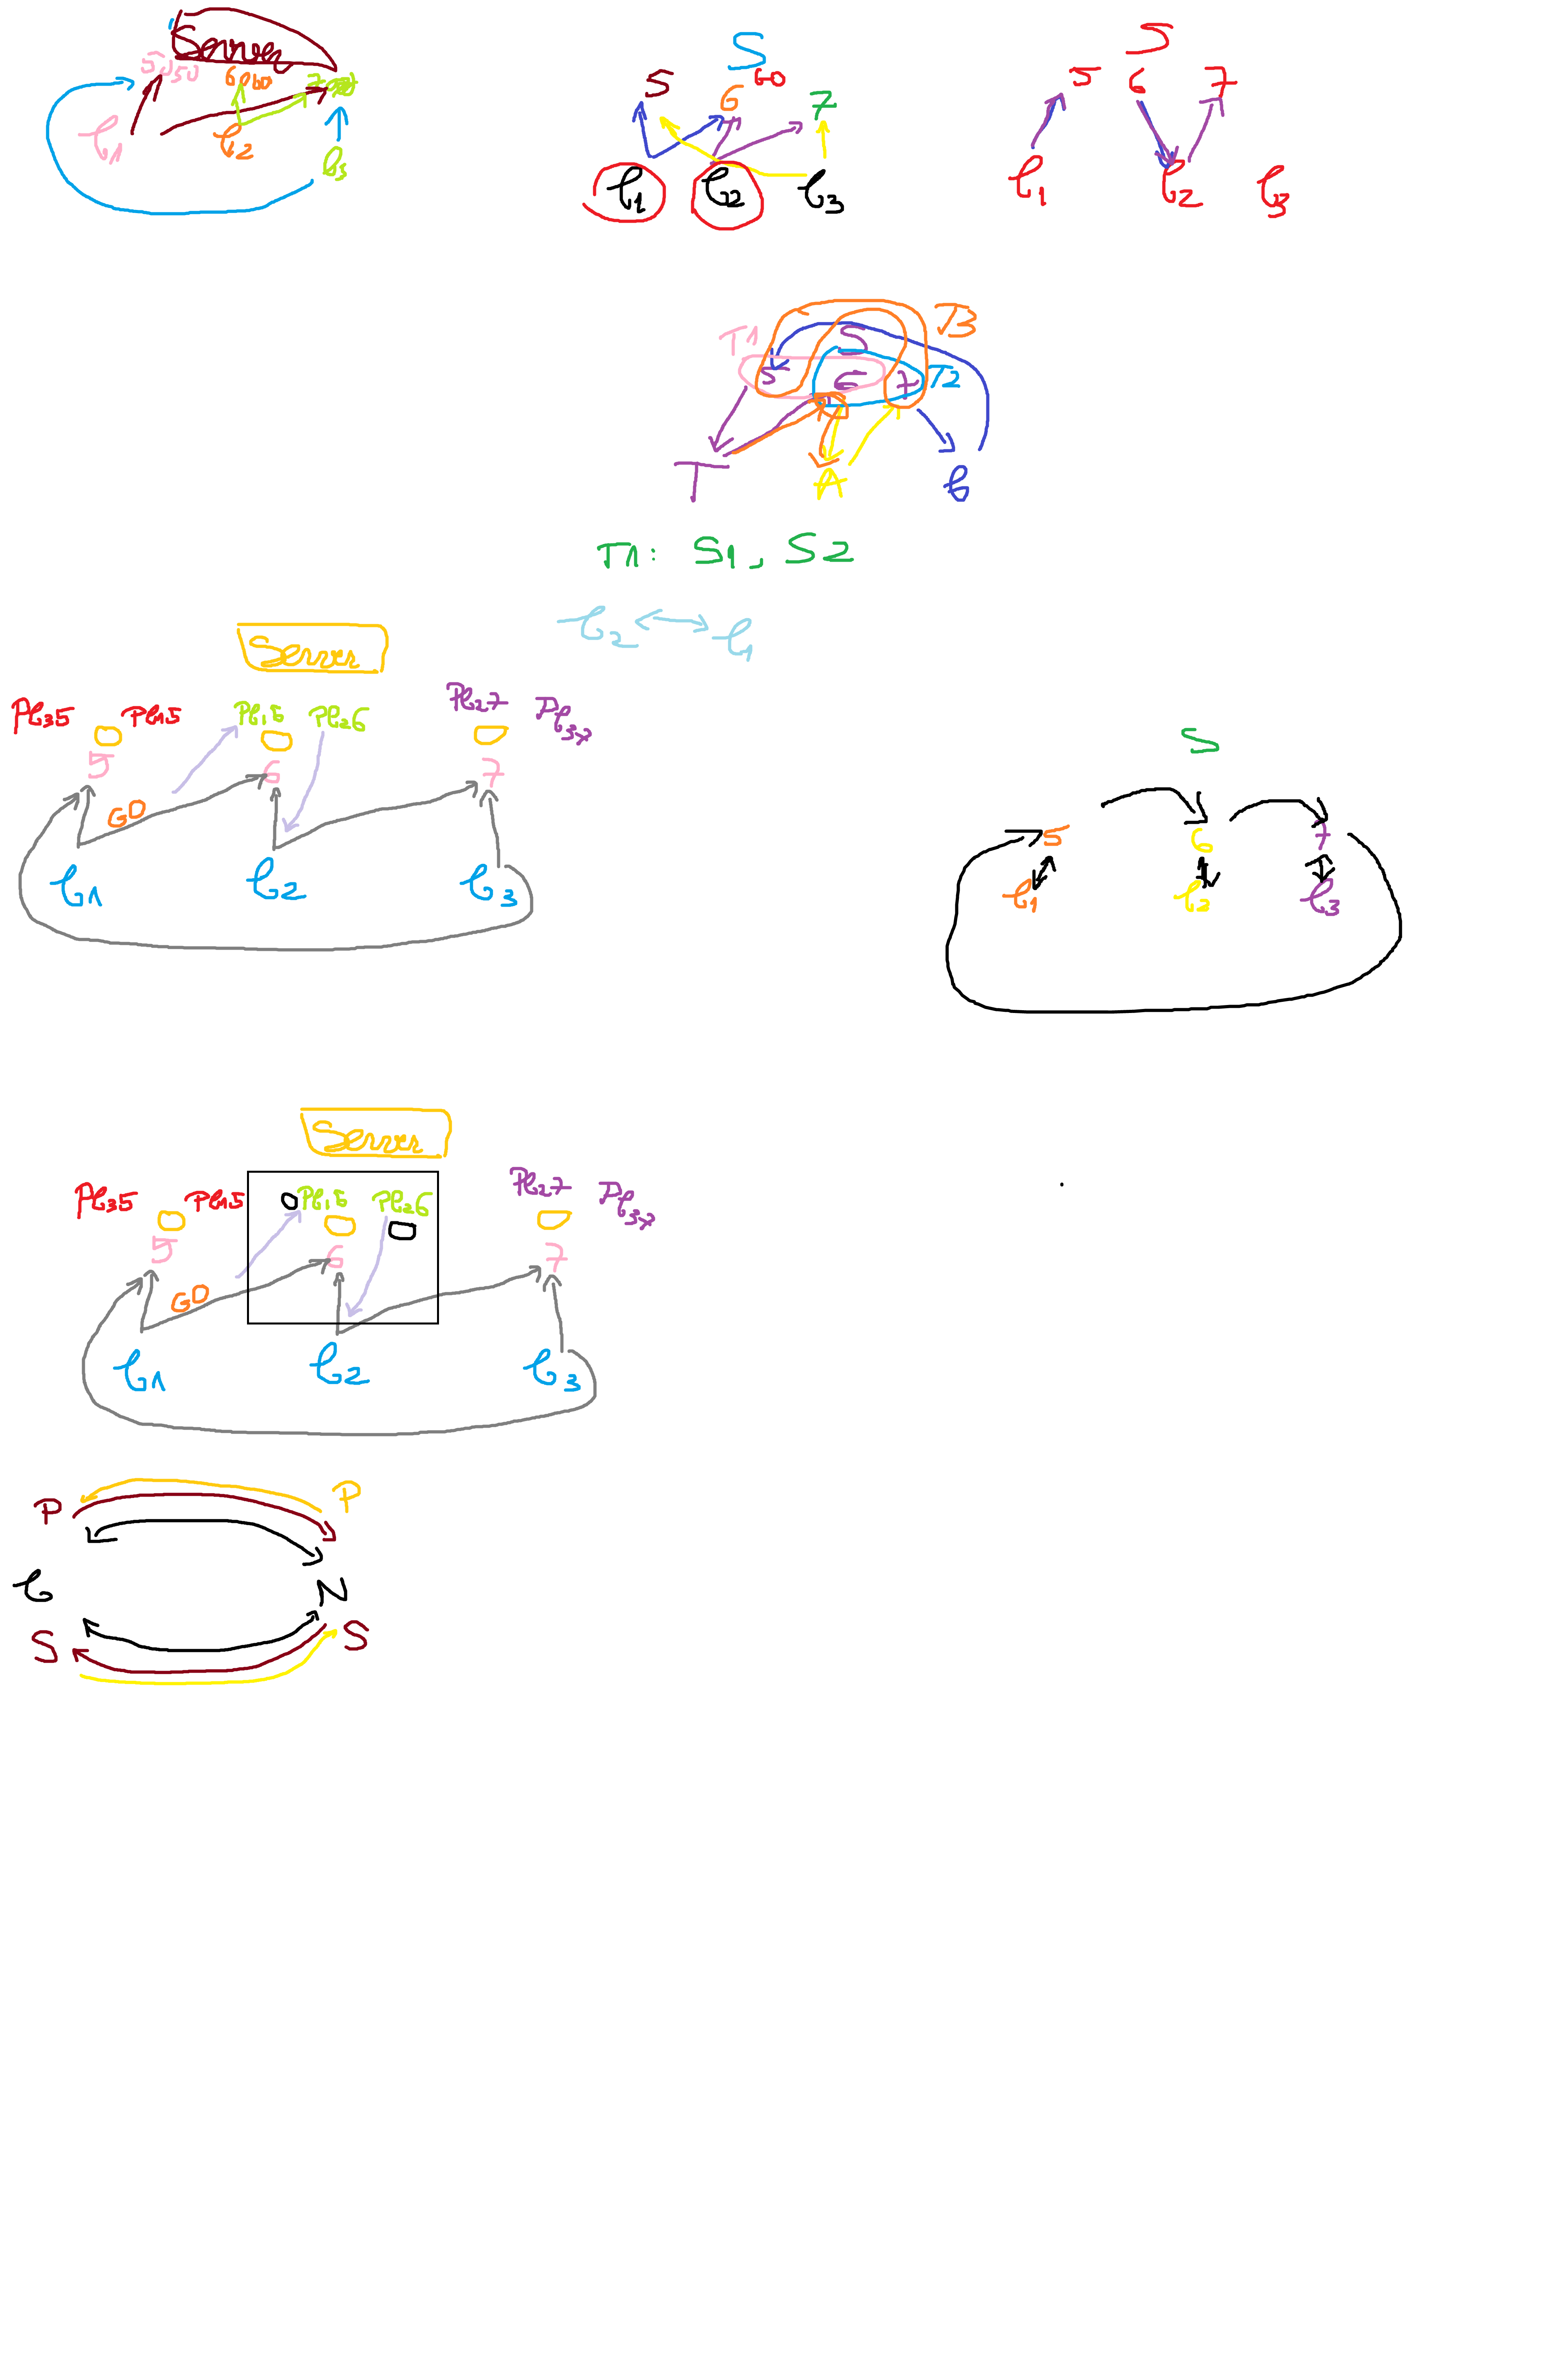 Server
C1 C2
S
5 6 60 7
C1 C2 C3
S
5 6 7
C1 C2 C3
T1 S T3
5 6 7 T2
T A C
T1: S1, S2
C2 C1
Server
PC35 PC15 PC16 PC26 PC27 PC37
5 6 7
GO
C1 C2 C3
S
5 6 7
C1 C2 C3
Server
PC35 PC15 PC16 PC26 PC27 PC37
5 6 7
GO
C1 C2 C3
P P
C N
S S